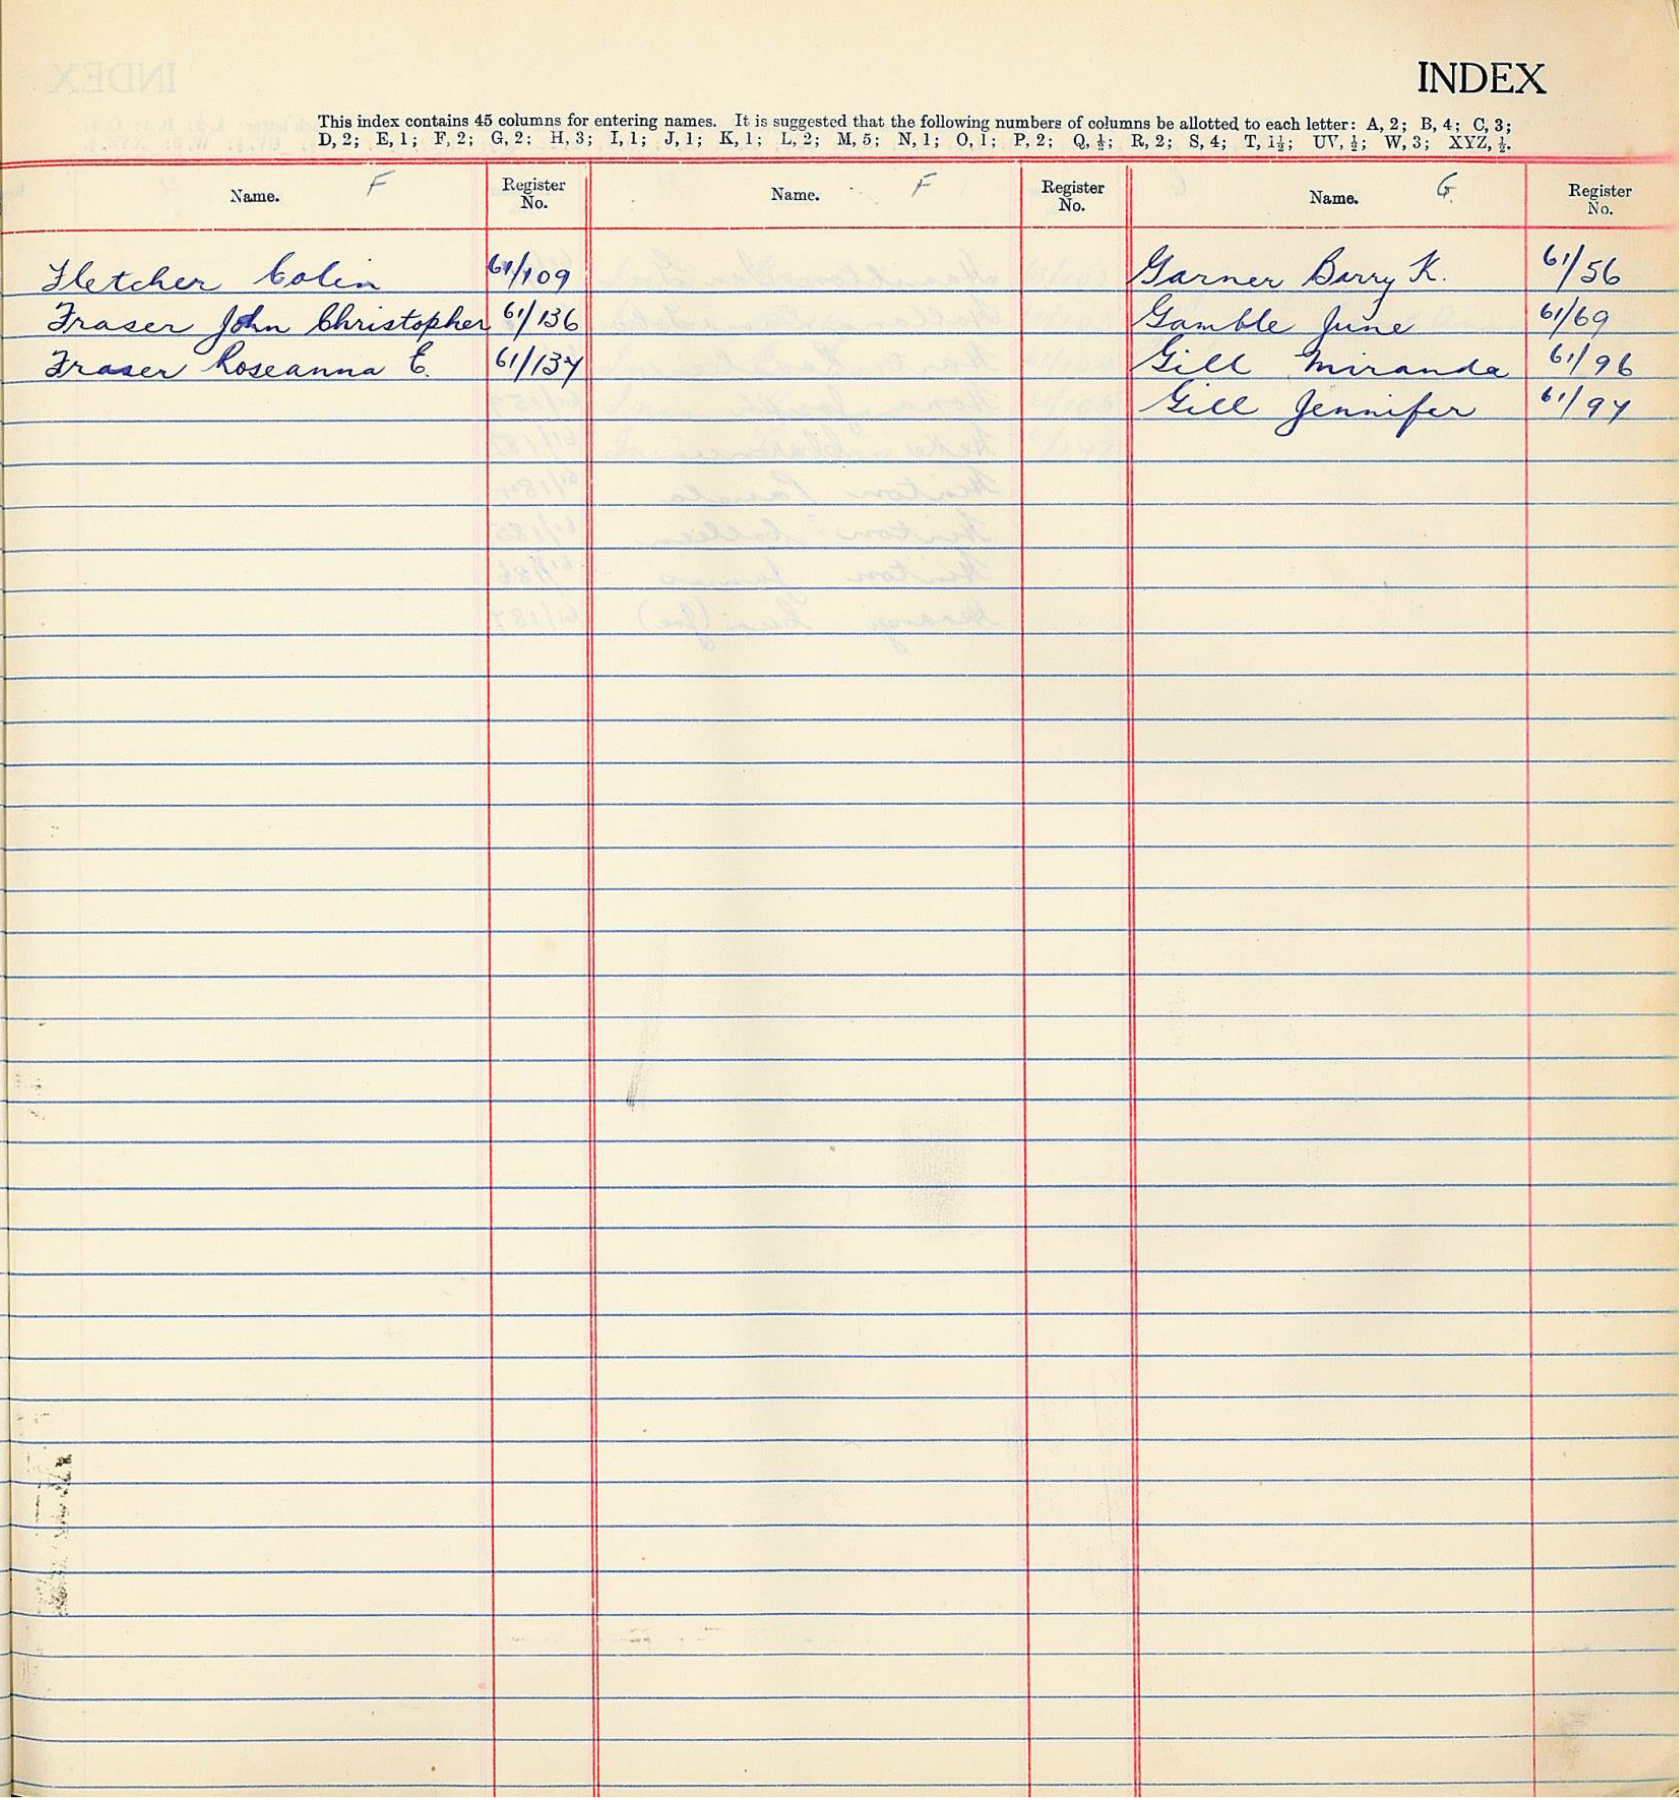 INDEX
This index contains 45 columns for entering names. It is suggested that the following numbers of columns be allotted to each letter: A, 2; B, 4; C, 3;
D, 2; E, 1; F, 2; G, 2; H, 3; I, 1; J, 1; K, 1; L, 2; M, 5; N, 1; O, 1; P, 2; Q, ½; R, 2; S, 4; T, 1½; UV, ½; W, 3; XYZ, ½.
Name. F Register No. Name. F Register No. Name. G. Register No.
Fletcher Colin 61/109 Garner Barry K. 61/56
Fraser John Christopher 61/136 Gamble June 61/69
Fraser Roseanna E. 61/137 Gill Miranda 61/96
Gill Jennifer 61/97